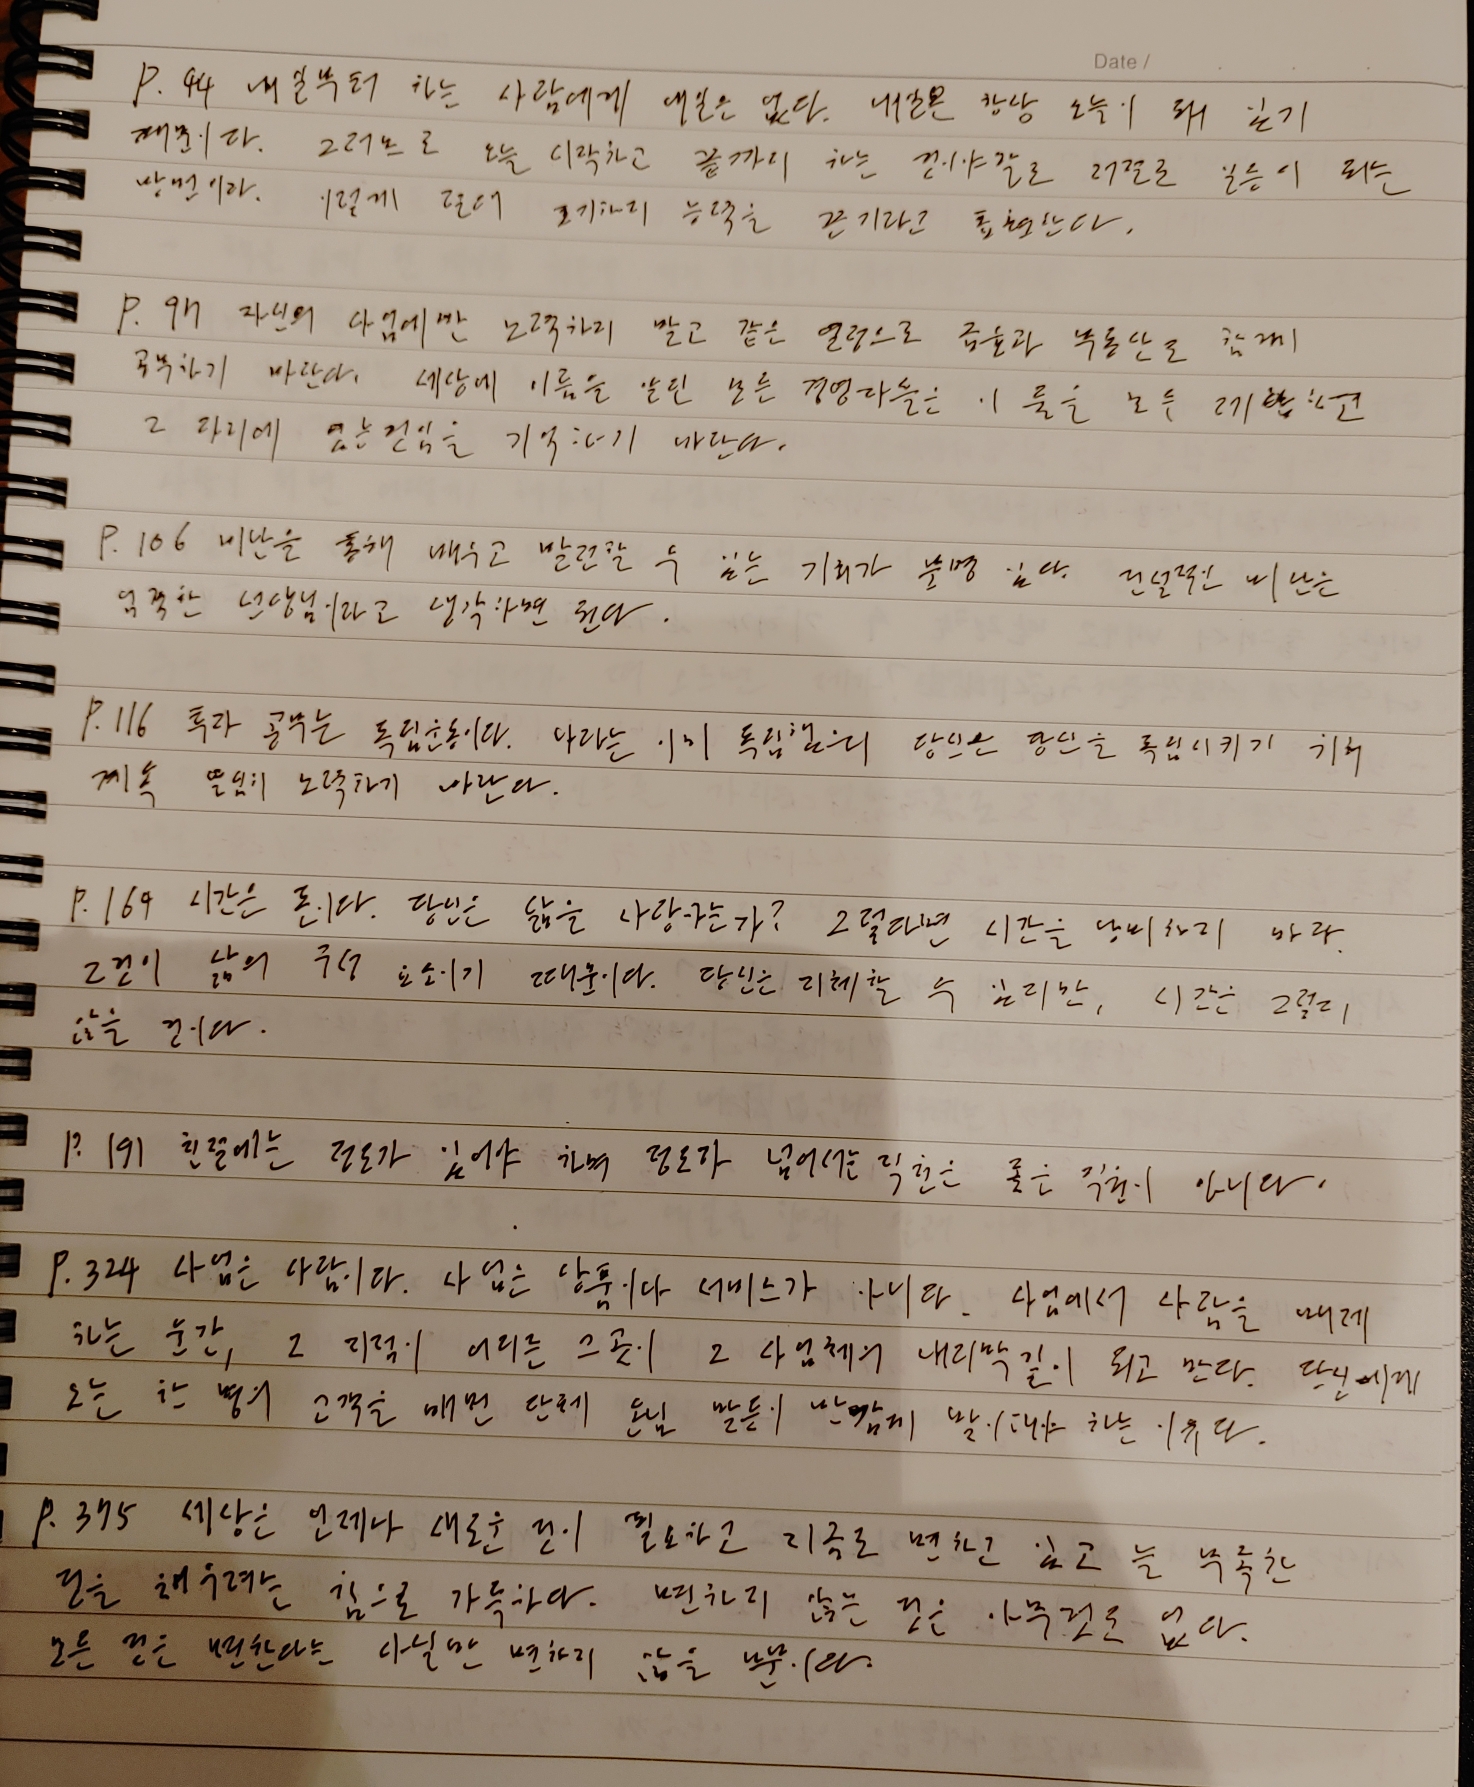 Date /
p. 44 내일부터 하는 사람에게 내일은 없다. 내일은 항상 오늘이 돼 있기
때문이다. 그러므로 오늘 시작하고 끝까지 하는 것이야말로 실은이 되는
방법이다. 이렇게 포기하지 능력을 끈기라고 표현한다.
p. 97 자신의 사업에만 노력하지 말고 같은 열정으로 금융과 부동산도 함께
공부하기 바란다. 세상에 이름을 알린 모든 경영자들은 이 둘을 모두 하고
그 자리에 있는 것임을 기억하기 바란다.
p. 106 비난을 통해 배우고 발전할 수 있는 기회가 분명 있다. 건설적인 비난은
엄격한 선생님이라고 생각하면 된다.
p. 116 투자 공부는 독립운동이다. 나라는 이미 독립했으니 당신은 당신을 독립시키기 위해
계속 열심히 노력하기 바란다.
p. 164 시간은 돈이다. 당신은 삶을 사랑하는가? 그렇다면 시간을 낭비하지 마라.
그것이 삶의 구성 요소이기 때문이다. 당신은 지체할 수 있지만, 시간은 그렇지
않을 것이다.
p. 191 친절에는 정도가 있어야 하며 정도가 넘어서는 직원은 좋은 직원이 아니다.
p. 324 사업은 사람이다. 사업은 상품이나 서비스가 아니다. 사업에서 사람을 배제
하는 순간, 그 지점이 어디든 그곳이 그 사업체의 내리막길이 되고 만다. 당신에게
오는 한 명의 고객을 매번 단체 손님 맞듯이 반갑게 맞이해야 하는 이유다.
p. 375 세상은 언제나 새로운 것이 필요하고 지금도 변하고 있고 늘 부족한
것을 채우려는 힘으로 가득하다. 변하지 않는 것은 아무것도 없다.
모든 것은 변한다는 사실만 변하지 않을 뿐이다.